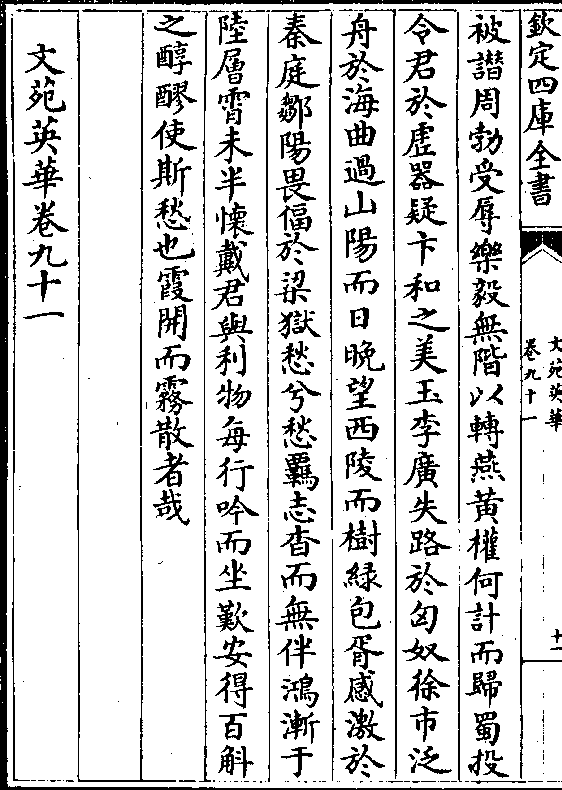 欽定四庫全書
文苑英華
卷九十一
十一
被譖周勃受辱樂毅無階以轉燕黃權何計而歸蜀投
令君於虛器疑卞和之美玉李廣失路於匈奴徐市泛
舟於海曲過山陽而日晚望西陵而樹綠包胥感激於
秦庭鄒陽畏偪於梁獄愁兮愁羈志杳而無伴鴻漸于
陸層霄未半懷戴君與利物每行吟而坐歎安得百斛
之醇醪使斯愁也霞開而霧散者哉
文苑英華卷九十一